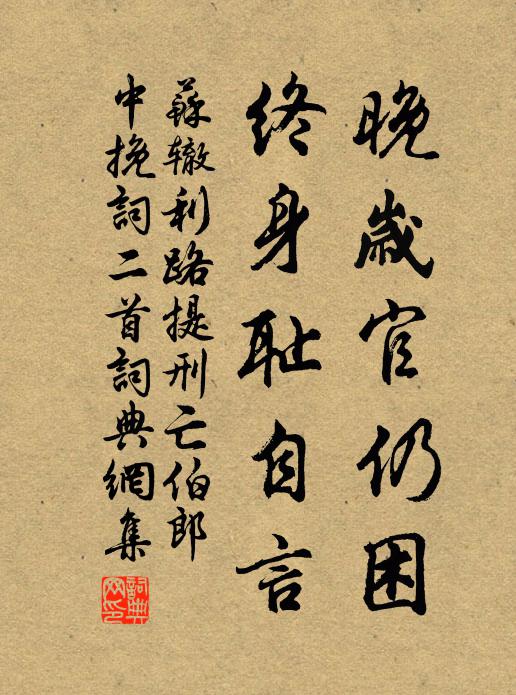 晚歲官仍困
終身耻自言
蘇轍利路提刑亡伯郎
中挽詞二首詞典網集
詞典网印